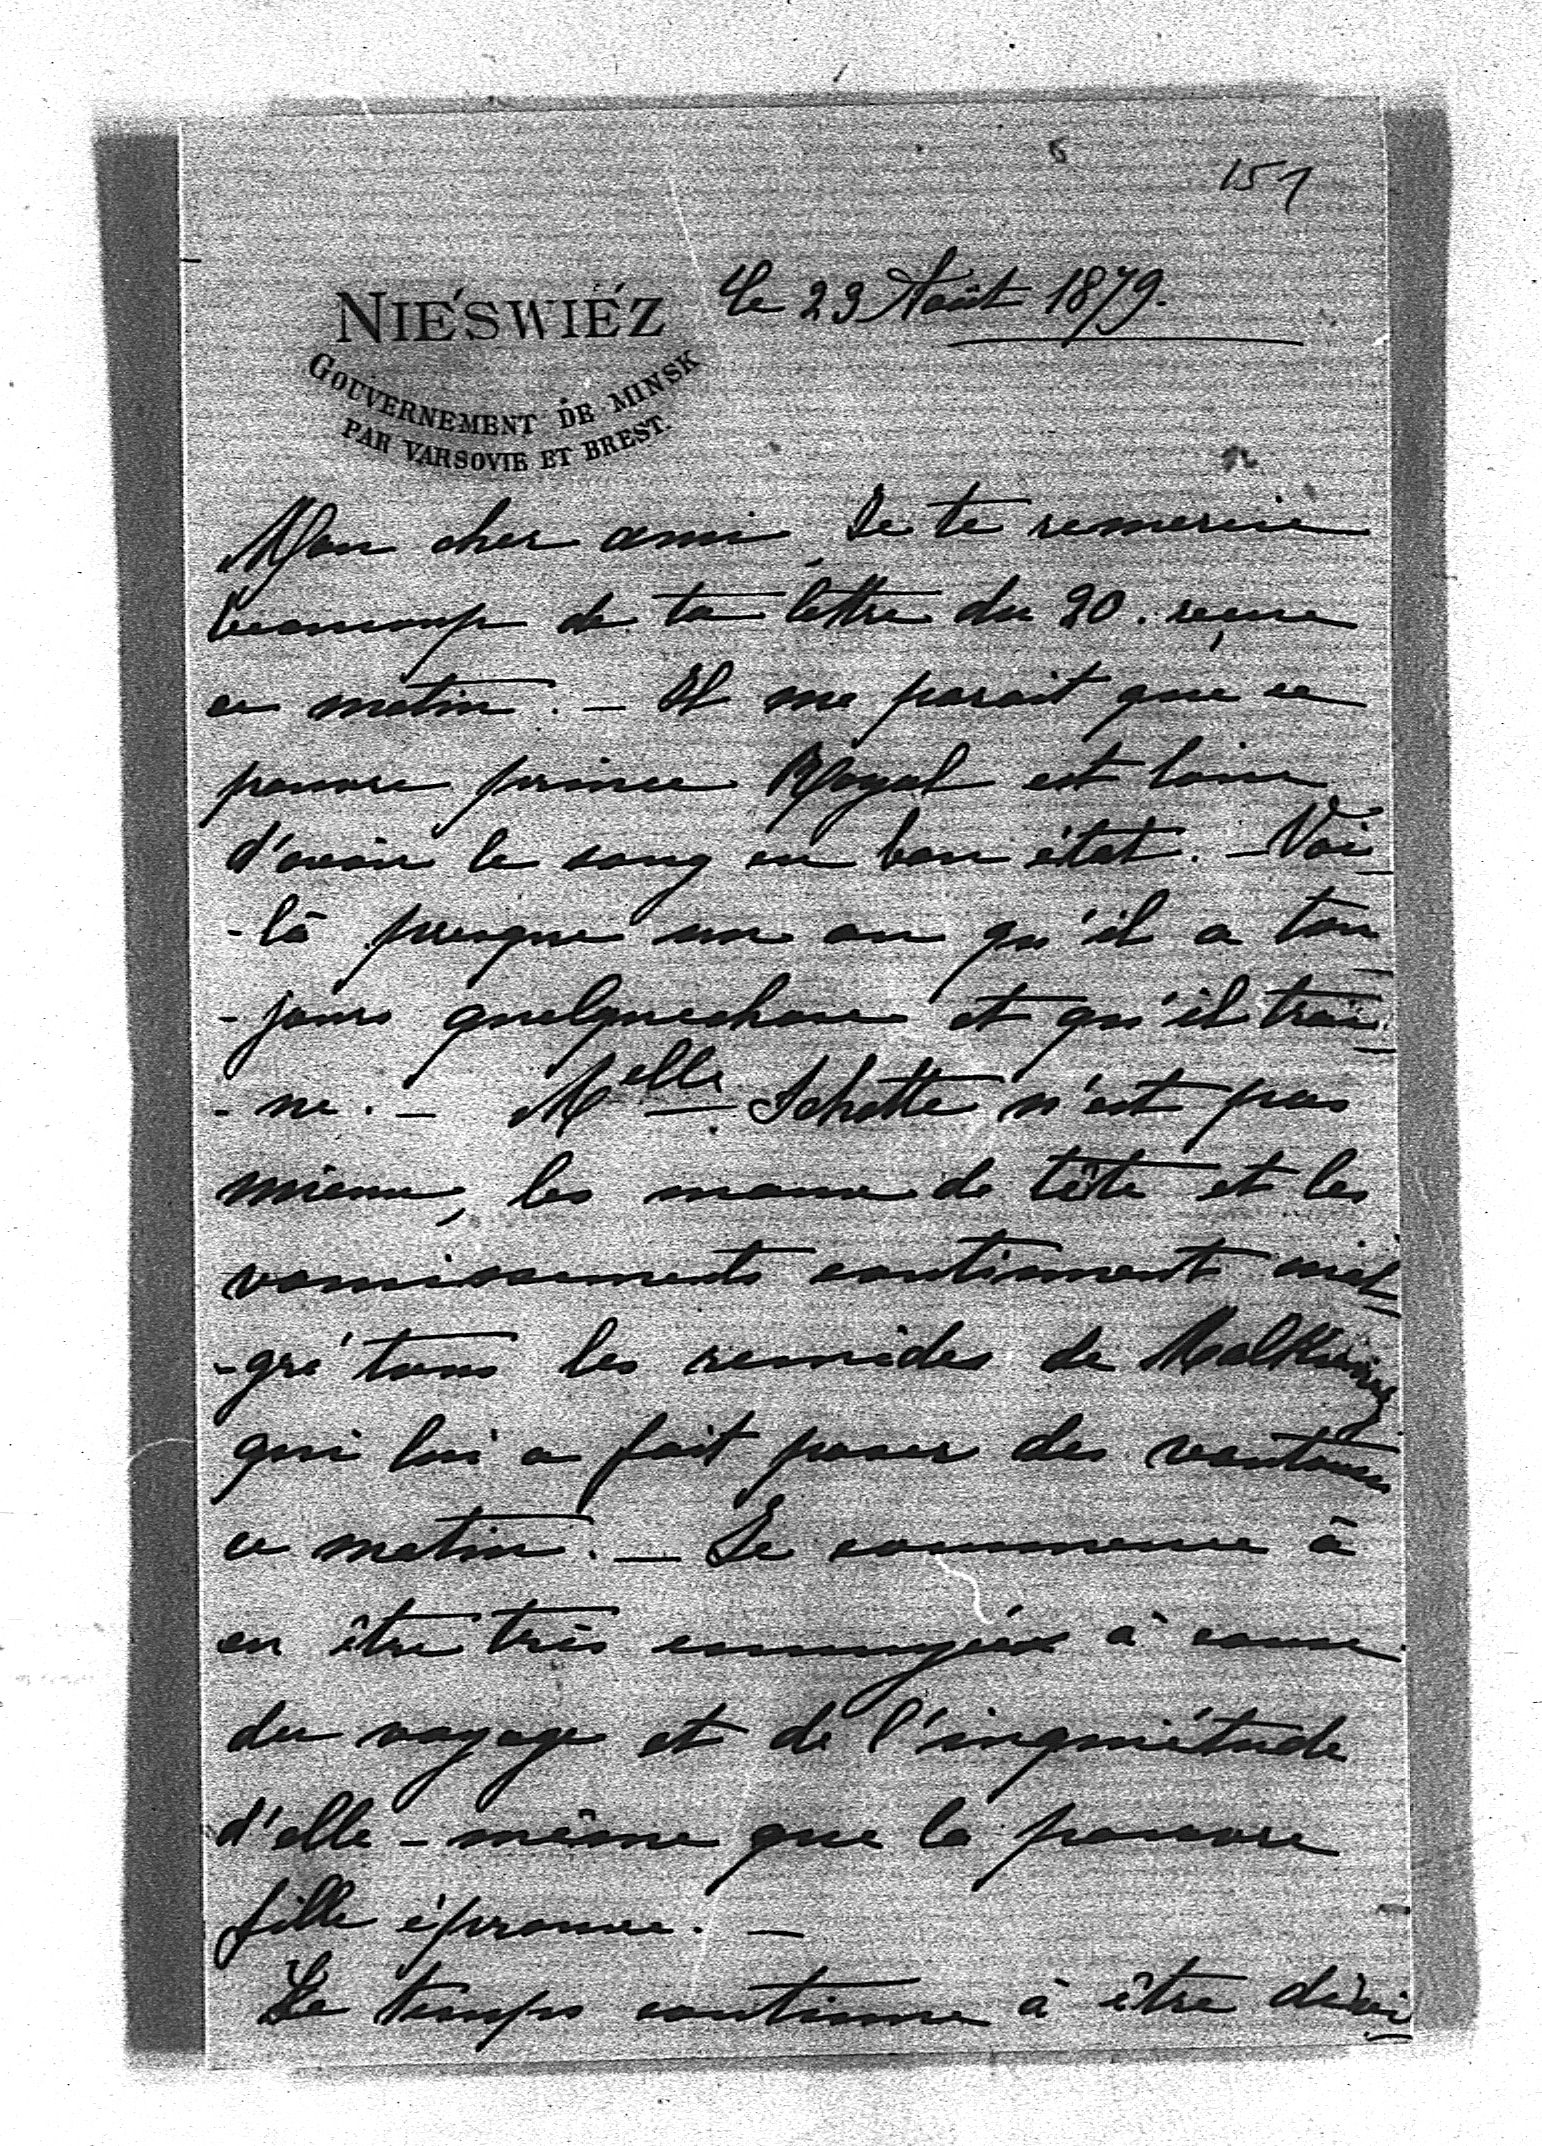 151
NIÉSWIÉZ
Le 23 Août 1879.
GOUVERNEMENT DE MINSK
PAR VARSOVIE ET BREST.
Mon cher ami, Je te remercie
beaucoup de ta lettre du 20. reçue
ce matin. – Il me parait que ce
pauvre prince Royal est loin
d'avoir le sang en bon état. – Voi
-là presque un an qu'il a tou
-jours quelquechose et qu'il traî
-ne. – Melle Schotte n'est pas
mieux, les maux de tête et les
vomissements continuent mal
-gré tous les remèdes de
qui lui a fait poser des ventouses
ce matin. – Je commence à
en être très ennuyée à cause
du voyage et de l'inquiétude
d'elle-même que la pauvre
fille éprouve. –
Le temps continue à être divi